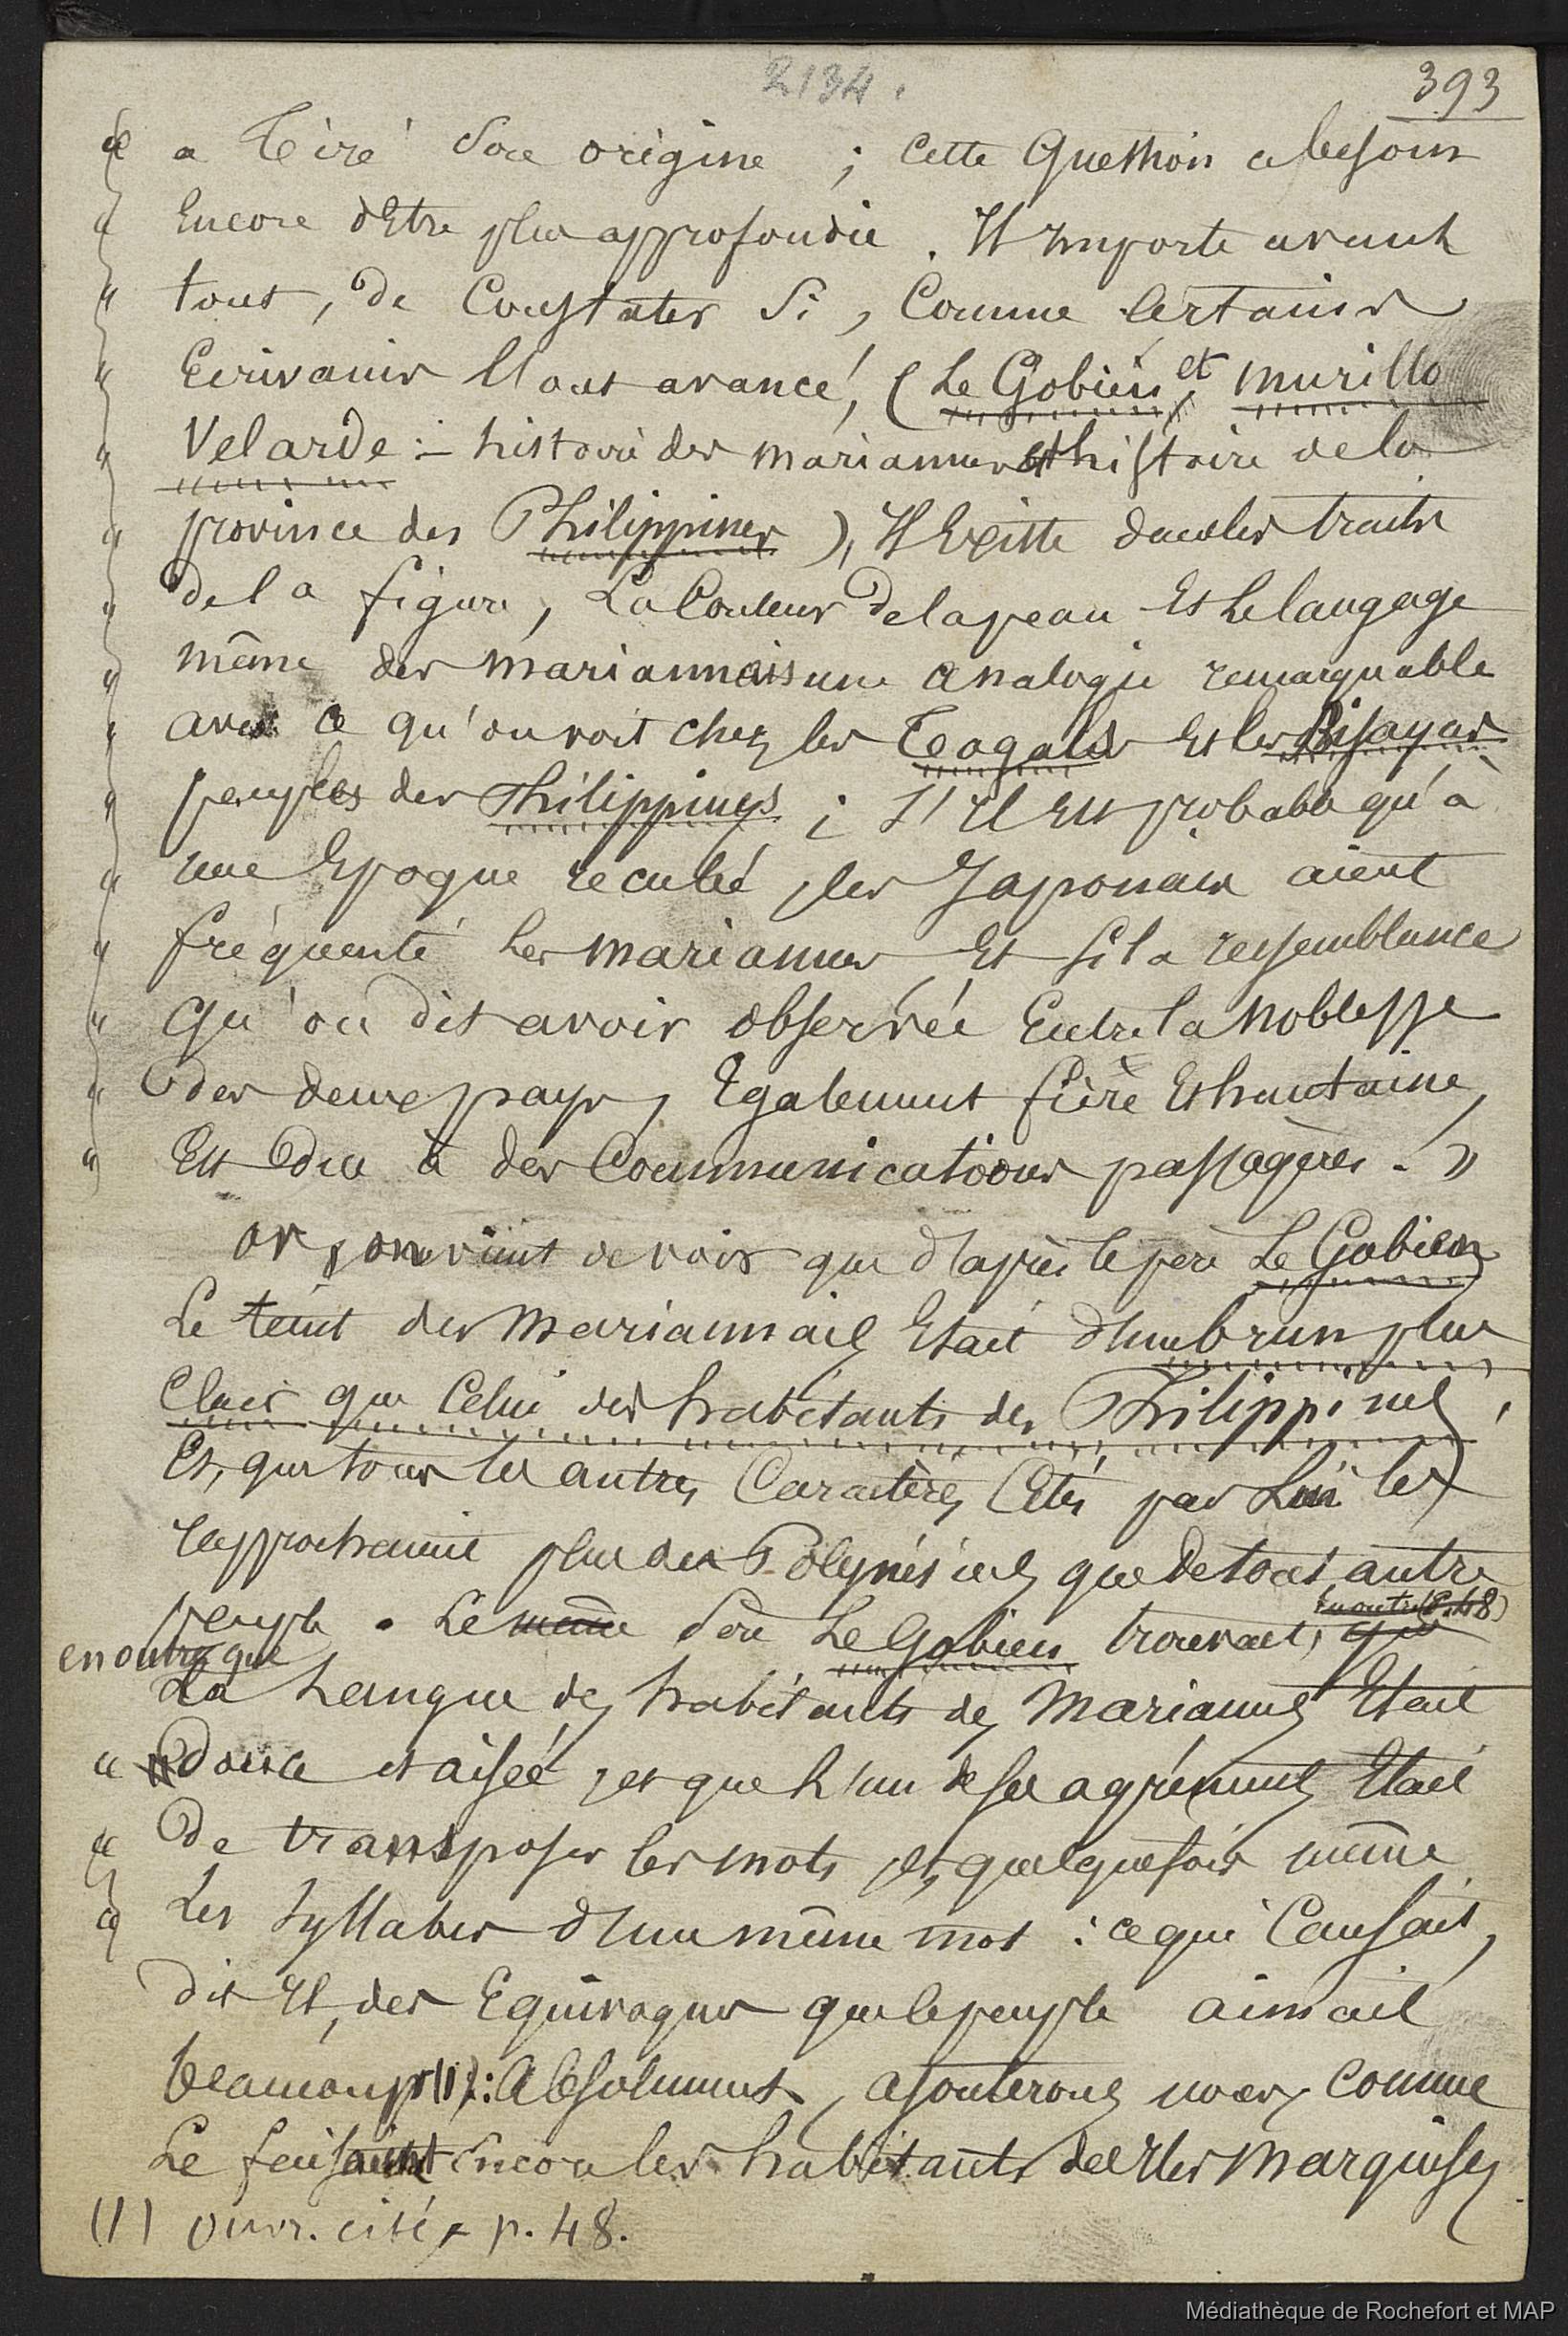 2134.
393
" a tiré son origine ; cette question a besoin
" encore d'Etre plus approfondie. Il importe avant
" tout, de Constater Si, Comme Certains
" Ecrivains l'ont avancé, (Le Gobien et Murillo
" Velarde :- histoire des mariannes et histoire de la
" province des Philippines), Il Existe dans les traits
" de la figure, La Couleur de la peau Et le langage
" même des mariannais une analogie remarquable
" avec ce qu'on voit chez les Tagals Et les Bisayas
" peuples des Philippines ; S'il Est probable qu'à
" une Epoque reculée, les Japonais aient
" fréquenté les mariannes Et si la ressemblance
" qu'on dit avoir observée Entre la noblesse
" des deux pays, Egalement fière Et hautaine,
" Est due à des Communications passagères. »
or, on vient de voir que d'après le père Le Gobien
Le teint des Mariannais Etait d'un brun plus
Clair que Celui des habitants des Philippines,
Et, que tous les autres Caractères Cités par Lui les
rapprochaient plus des Polynésiens que de tout autre
peuple. Le même Père Le Gobien trouvait, que En outre (p.48)
en outre que
La Langue des habitants des Mariannes Etait
" douce et aisée, et que l'un de ses agréments Etait
" de transposer les mots, et, quelquefois même
" Les Syllabes d'un même mot : ce qui Causait,
dit Il, des Equivoques que le peuple aimait
beaucoup (1) : Absolument, ajouterons nous, comme
Le faisaient Encore les habitants des Iles Marquises
(1) ouvr. cité, p. 48.
Médiathèque de Rochefort et MAP